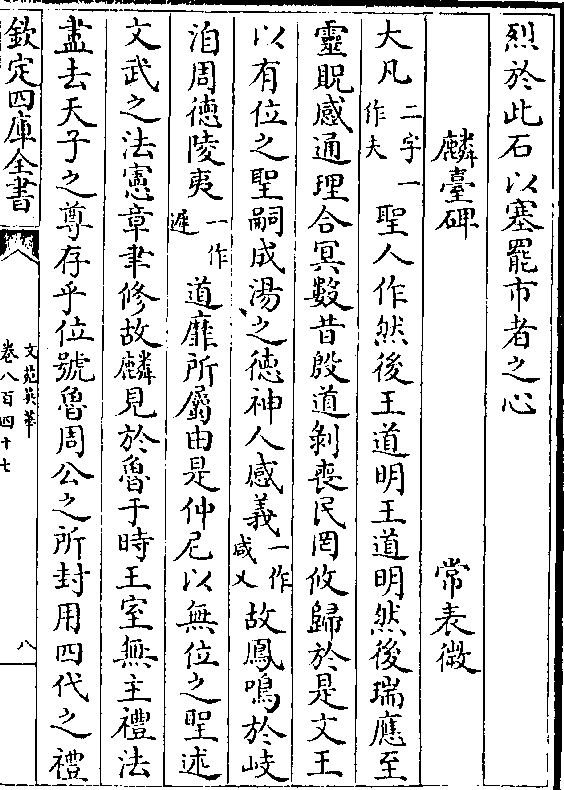 烈於此石以塞罷市者之心
麟臺碑　常表微
大凡二字一作夫聖人作然後王道明王道明然後瑞應至
靈貺感通理合冥數昔殷道剝喪民罔攸歸於是文王
以有位之聖嗣成湯之德神人感義一作咸乂故鳳鳴於岐
洎周德陵夷一作遲道靡所屬由是仲尼以無位之聖述
文武之法憲章聿修故麟見於魯于時王室無主禮法
盡去天子之尊存乎位號魯周公之所封用四代之禮
欽定四庫全書
文苑英華
卷八百四十七
八